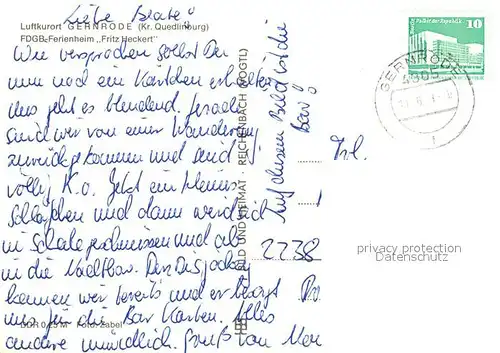 Liebe Beate!
Luftkurort GERNRODE (Kr. Quedlinburg)
FDGB-Ferienheim „Fritz Heckert"
Wie versprochen sollst Du
nun noch ein Kärtchen erhalten
uns geht es blendend. Gerade
sind wir von einer Wanderung
zurückgekommen und sind
völlig K.o. Jetzt ein kleines
Schläfchen und dann werd ich
in Schale geschmissen und ab
in die Nachtbar. Den Disjockey
kennen wir bereits und er besorgt
uns für die Bar Karten. Alles
andere mündlich. Gruß von
DDR 0,25 M Foto: Zabel
BILD UND HEIMAT · REICHENBACH (VOGTL)
Auf diesem Bild ist die
Bar!
Palast der Republik
10
GERNRODE
4305
Frl.
2238
privacy protection
Datenschutz